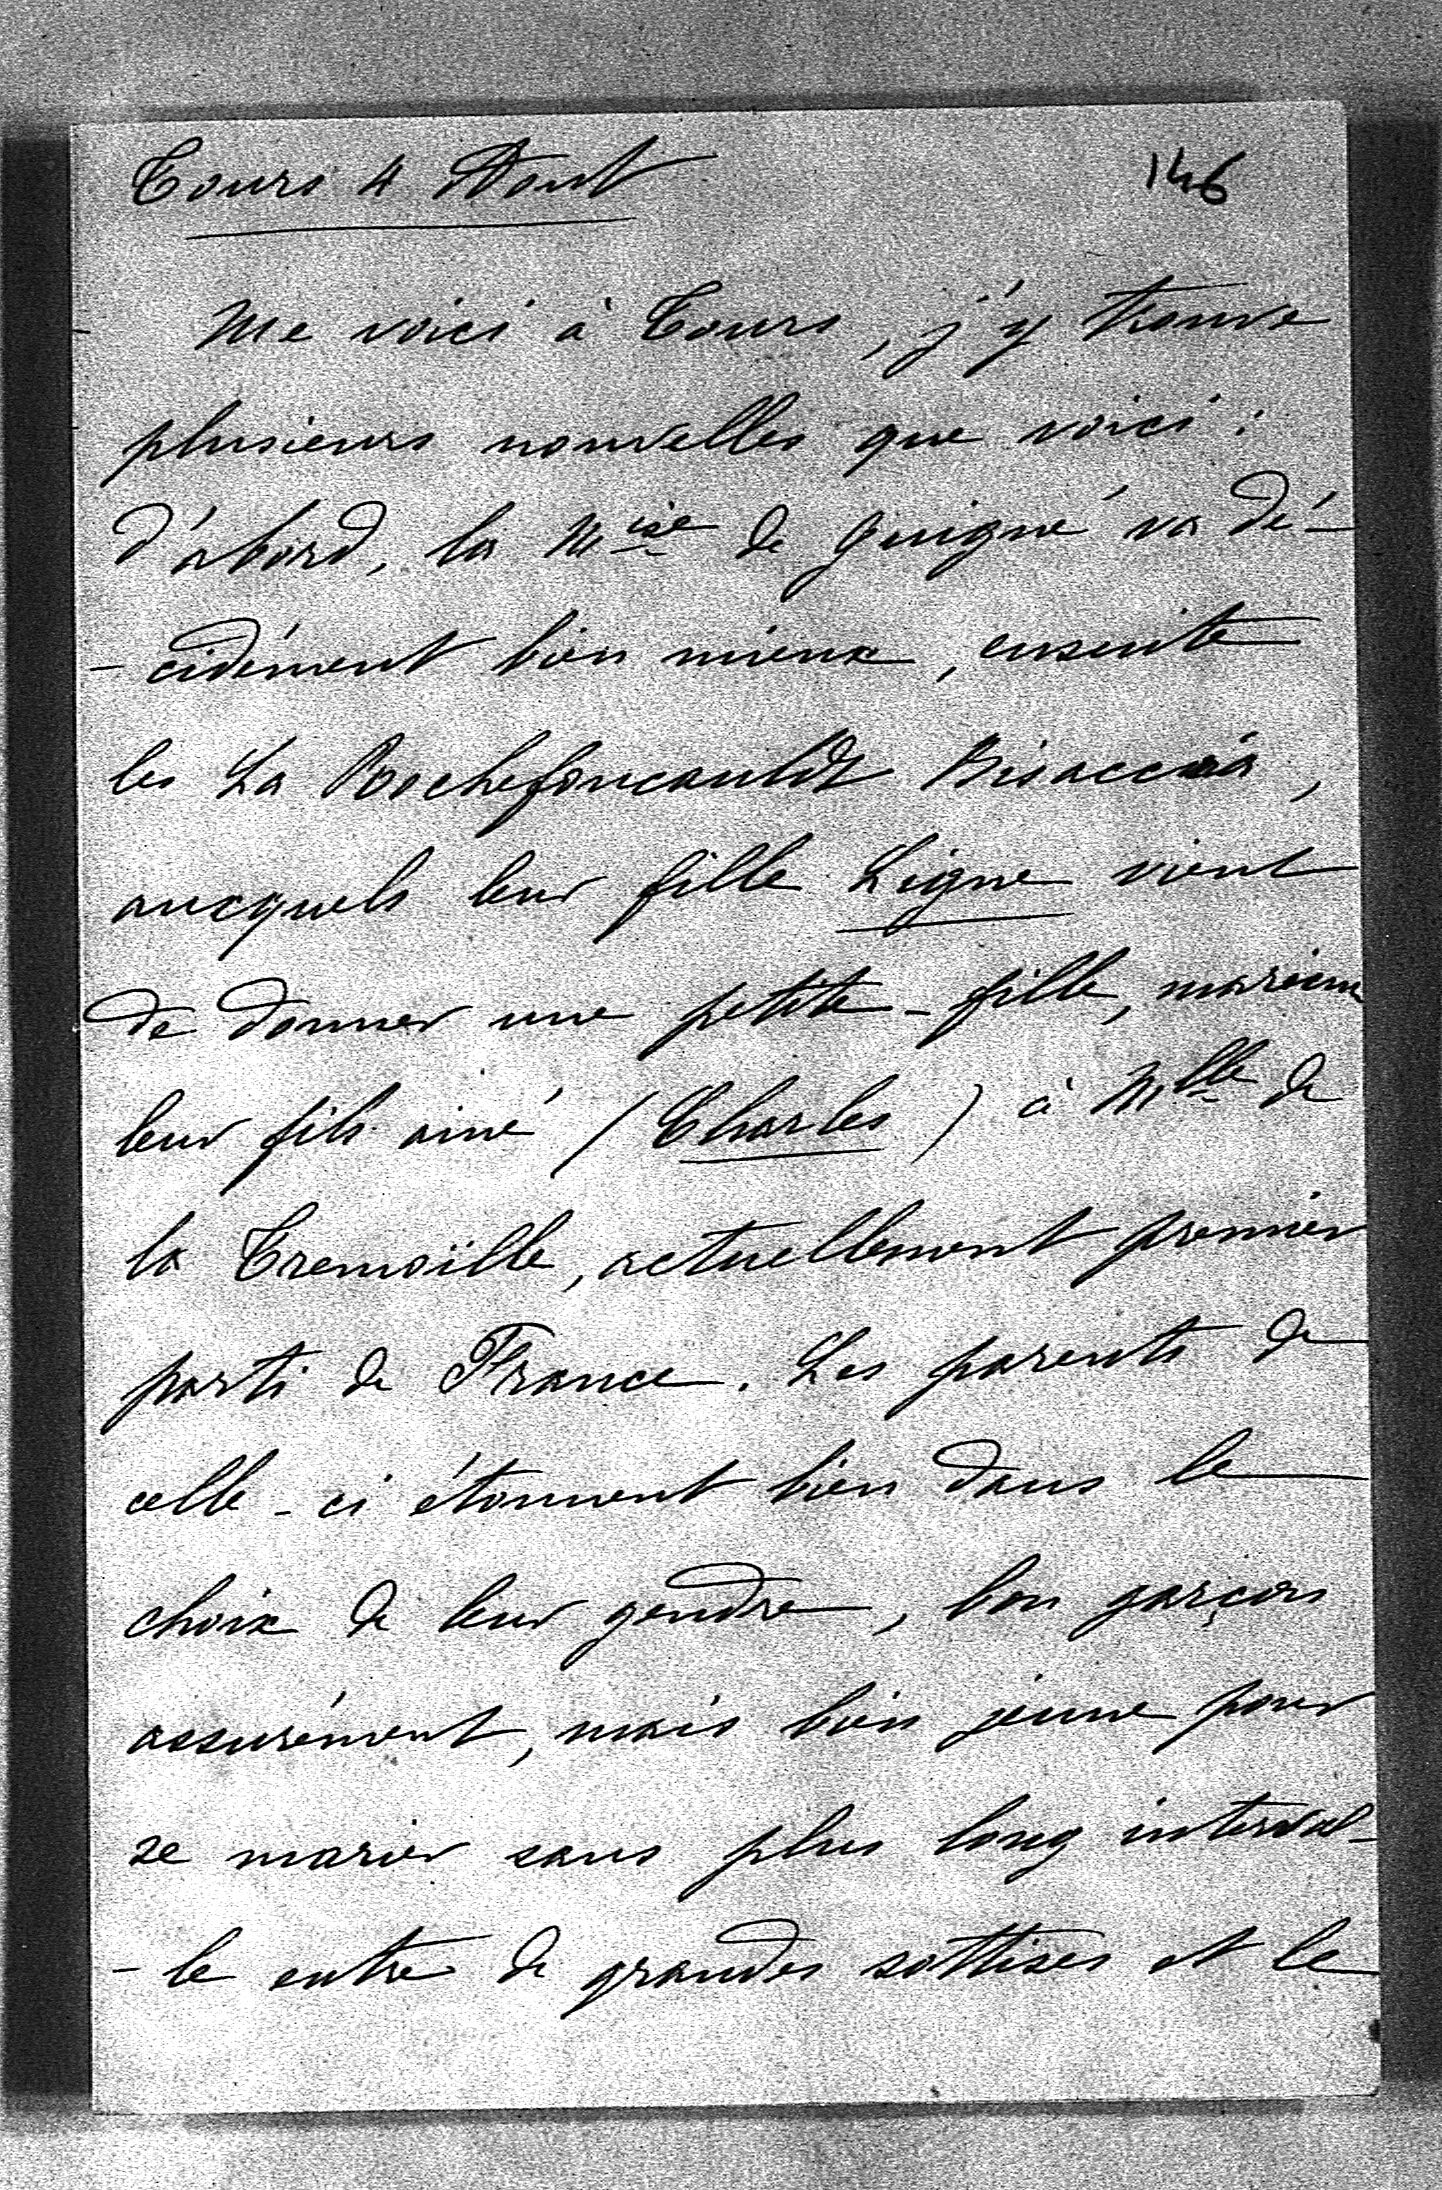 Tours 4 Aout
146
Me voici à Tours, j'y trouve
plusieurs nouvelles que voici :
d'abord, la Mise de Guigné va dé-
- cidément bien mieux, ensuite
les La Rochefoucauldt Bisaccia,
auxquels leur fille Ligne vient
de donner une petite-fille, marient
leur fils ainé (Charles) à Mlle de
la Tremoïlle, actuellement premier
parti de France. Les parents de
celle-ci étonnent bien dans le
choix de leur gendre, bon garçon
assurément, mais bien jeune pour
se marier sans plus long interval-
- le entre de grandes sottises et le